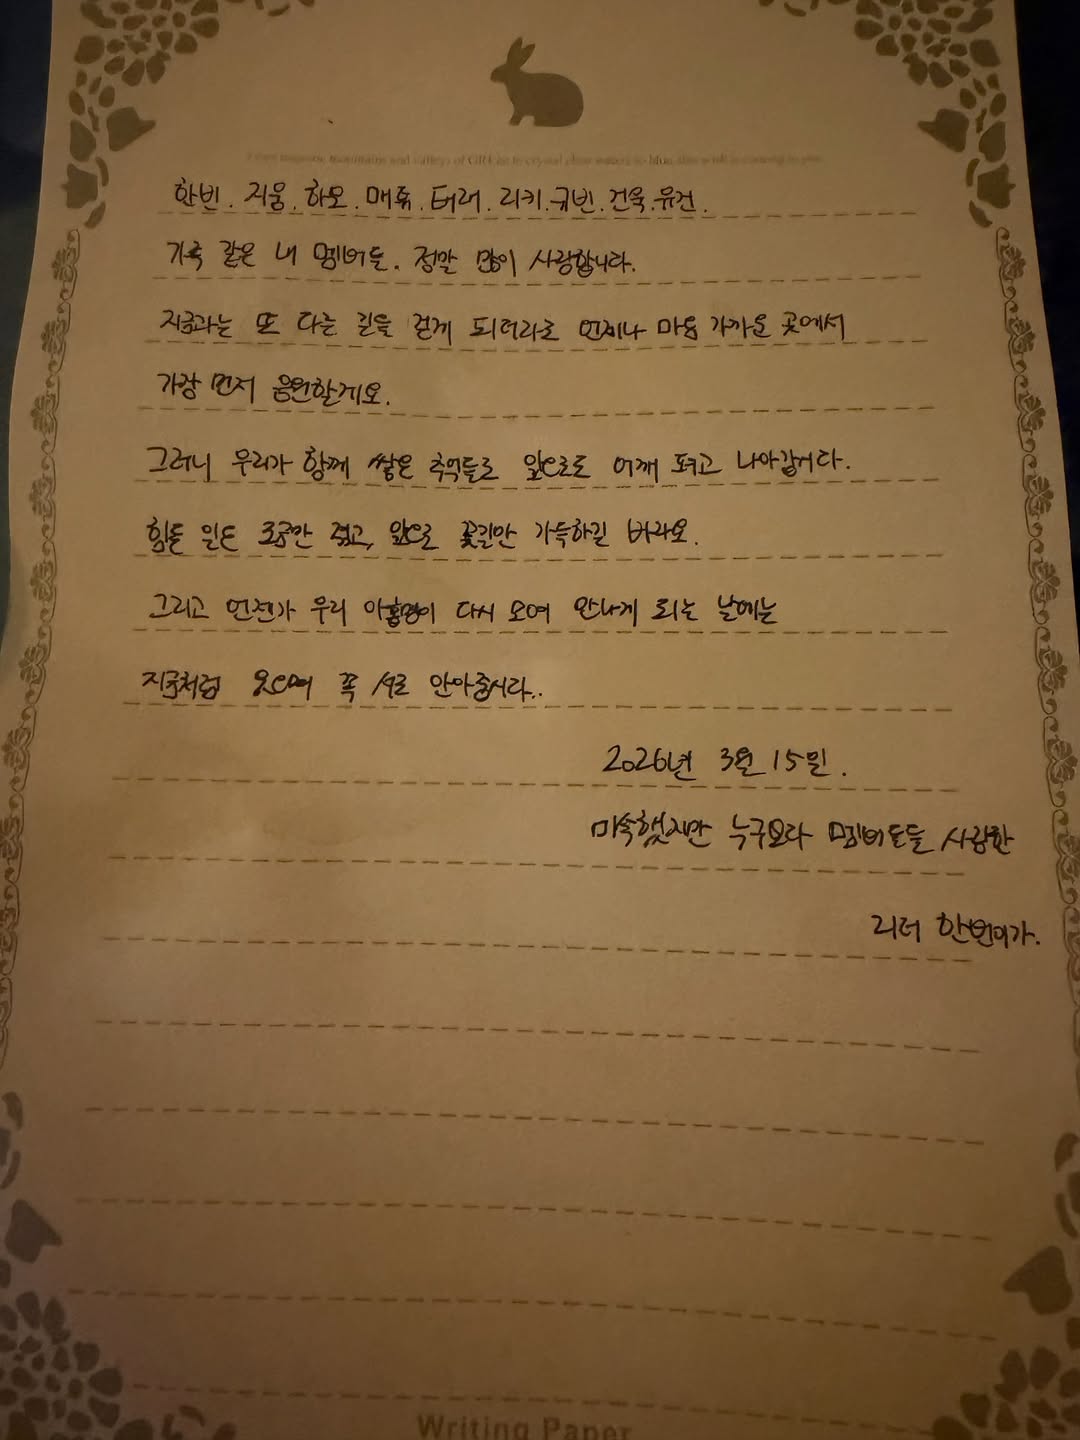 한빈. 지웅. 하오. 매튜. 태래. 리키. 규빈. 건욱. 유진.
가족 같은 내 멤버들. 정말 많이 사랑합니다.
지금과는 또 다른 길을 걷게 되더라도 언제나 마음 가까운 곳에서
가장 먼저 응원할게요.
그러니 우리가 함께 쌓은 추억들로 앞으로도 어깨 펴고 나아갑시다.
힘든 일은 조금만 겪고, 앞으로 꽃길만 가득하길 바라요.
그리고 언젠가 우리 아홉명이 다시 모여 만나게 되는 날에는
지금처럼 웃으며 꼭 서로 안아줍시다..
2026년 3월 15일.
미숙했지만 누구보다 멤버들을 사랑한
리더 한빈이가.
Writing Paper